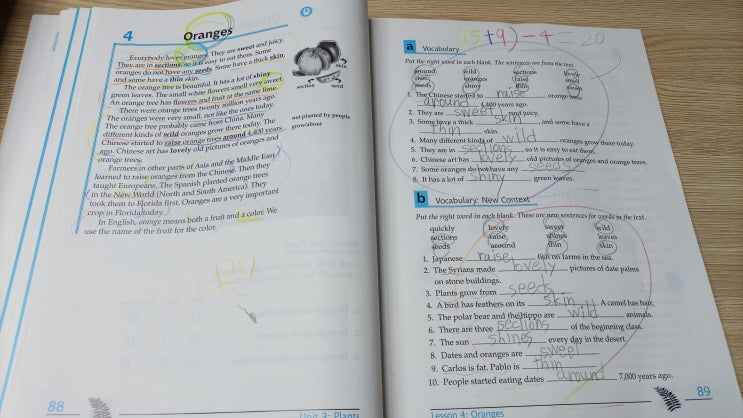 4
Oranges
Everybody loves oranges. They are sweet and juicy.
They are in sections, so it is easy to eat them. Some
oranges do not have any seeds. Some have a thick skin,
and some have a thin skin.
The orange tree is beautiful. It has a lot of shiny
green leaves. The small white flowers smell very sweet.
An orange tree has flowers and fruit at the same time.
There were orange trees twenty million years ago.
The oranges were very small, not like the ones today.
The orange tree probably came from China. Many
different kinds of wild oranges grow there today. The
Chinese started to raise orange trees around 4,400 years
ago. Chinese art has lovely old pictures of oranges and
orange trees.
Farmers in other parts of Asia and the Middle East
learned to raise oranges from the Chinese. Then they
taught Europeans. The Spanish planted orange trees
in the New World (North and South America). They
took them to Florida first. Oranges are a very important
crop in Florida today.
In English, orange means both a fruit and a color. We
use the name of the fruit for the color.
skin
section
seed
not planted by people
grow/about
88
Unit 3: Plants
(15+9)-4=20
a Vocabulary
Put the right word in each blank. The sentences are from the text.
around wild sections lovely
skin oranges
seeds shiny thin
1. The Chinese started to raise orange trees
around 4,400 years ago.
2. They are sweet and juicy.
3. Some have a thick skin, and some have a
thin skin.
4. Many different kinds of wild oranges grow there today.
5. They are in sections, so it is easy to eat them.
6. Chinese art has lovely old pictures of oranges and orange trees.
7. Some oranges do not have any seeds.
8. It has a lot of shiny green leaves.
b Vocabulary: New Context
Put the right word in each blank. These are new sentences for words in the text.
quickly lovely sweet wild
sections raise shines leaves
seeds around thin skin
1. Japanese raise fish on farms in the sea.
2. The Syrians made lovely pictures of date palms
on stone buildings.
3. Plants grow from seeds.
4. A bird has feathers on its skin. A camel has hair.
5. The polar bear and the hippo are wild animals.
6. There are three sections of the beginning class.
7. The sun shines every day in the desert.
8. Dates and oranges are sweet.
9. Carlos is fat. Pablo is thin.
10. People started eating dates around 7,000 years ago.
Lesson 4: Oranges
89